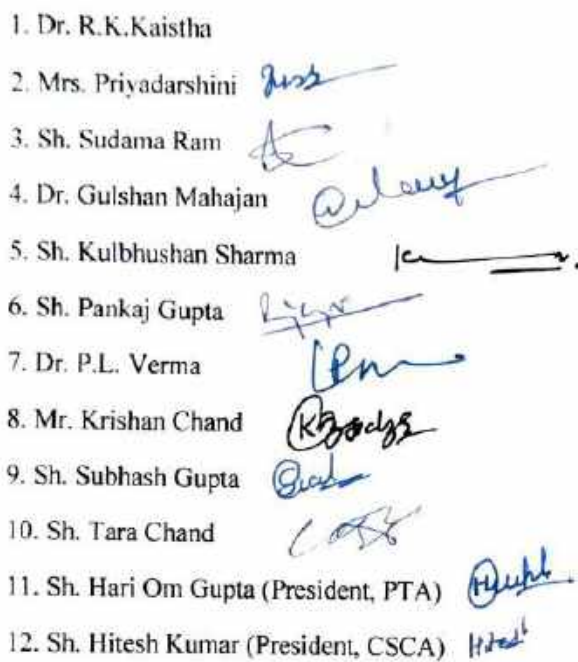 1. Dr. R.K.Kaistha
2. Mrs. Priyadarshini
3. Sh. Sudama Ram
4. Dr. Gulshan Mahajan
5. Sh. Kulbhushan Sharma
6. Sh. Pankaj Gupta
7. Dr. P.L. Verma
8. Mr. Krishan Chand
9. Sh. Subhash Gupta
10. Sh. Tara Chand
11. Sh. Hari Om Gupta (President, PTA)
12. Sh. Hitesh Kumar (President, CSCA) Hitesh